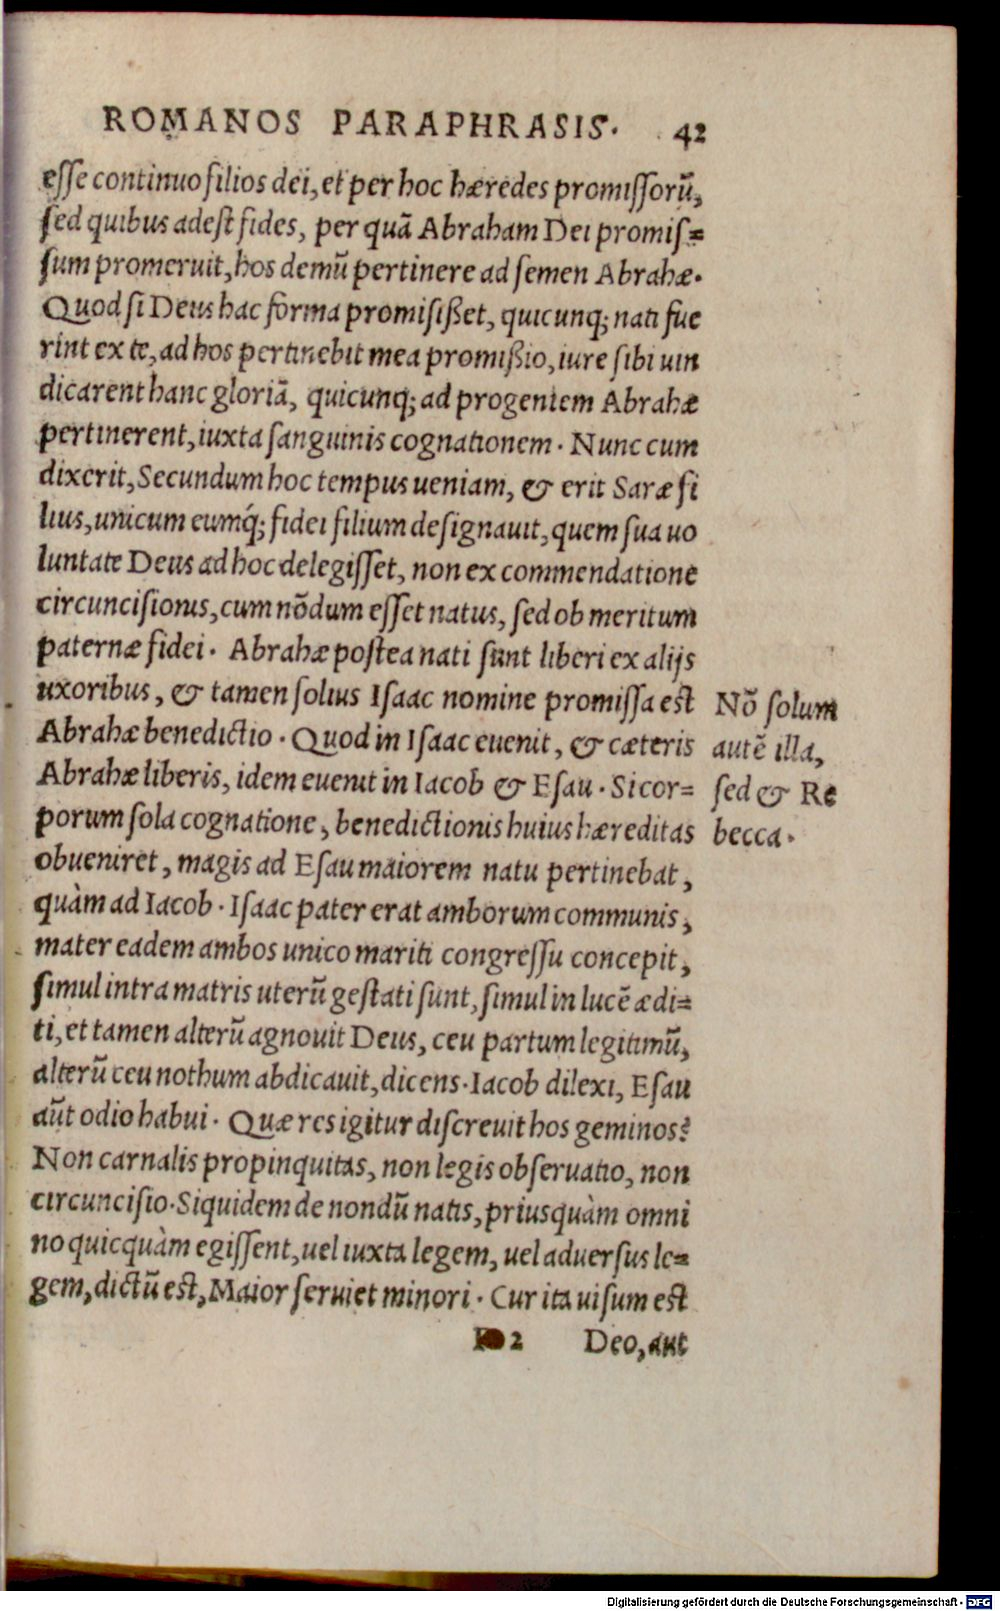 ROMANOS PARAPHRASIS. 42
esse continuo filios dei, et per hoc hæredes promissorũ,
sed quibus adest fides, per quã Abraham Dei promis=
sum promeruit, hos demũ pertinere ad semen Abrahæ.
Quod si Deus hac forma promisißet, quicunq; nati fue
rint ex te, ad hos pertinebit mea promißio, iure sibi uin
dicarent hanc gloriã, quicunq; ad progeniem Abrahæ
pertinerent, iuxta sanguinis cognationem. Nunc cum
dixerit, Secundum hoc tempus ueniam, & erit Saræ fi
lius, unicum eumq́; fidei filium designauit, quem sua uo
luntate Deus ad hoc delegisset, non ex commendatione
circuncisionis, cum nõdum esset natus, sed ob meritum
paternæ fidei. Abrahæ postea nati sunt liberi ex alijs
uxoribus, & tamen solius Isaac nomine promissa est
Abrahæ benedictio. Quod in Isaac euenit, & cæteris
Abrahæ liberis, idem euenit in Iacob & Esau. Si cor=
porum sola cognatione, benedictionis huius hæreditas
obueniret, magis ad Esau maiorem natu pertinebat,
quàm ad Iacob. Isaac pater erat amborum communis,
mater eadem ambos unico mariti congressu concepit,
simul intra matris uterũ gestati sunt, simul in lucẽ ædi=
ti, et tamen alterũ agnouit Deus, ceu partum legitimũ,
alterũ ceu nothum abdicauit, dicens. Iacob dilexi, Esau
aũt odio habui. Quæ res igitur discreuit hos geminos?
Non carnalis propinquitas, non legis obseruatio, non
circuncisio. Siquidem de nondũ natis, priusquàm omni
no quicquàm egissent, uel iuxta legem, uel aduersus le=
gem, dictũ est, Maior seruiet minori. Cur ita uisum est
2 Deo, aut
Nõ solum
autẽ illa,
sed & Re
becca.
Digitalisierung gefördert durch die Deutsche Forschungsgemeinschaft - DFG